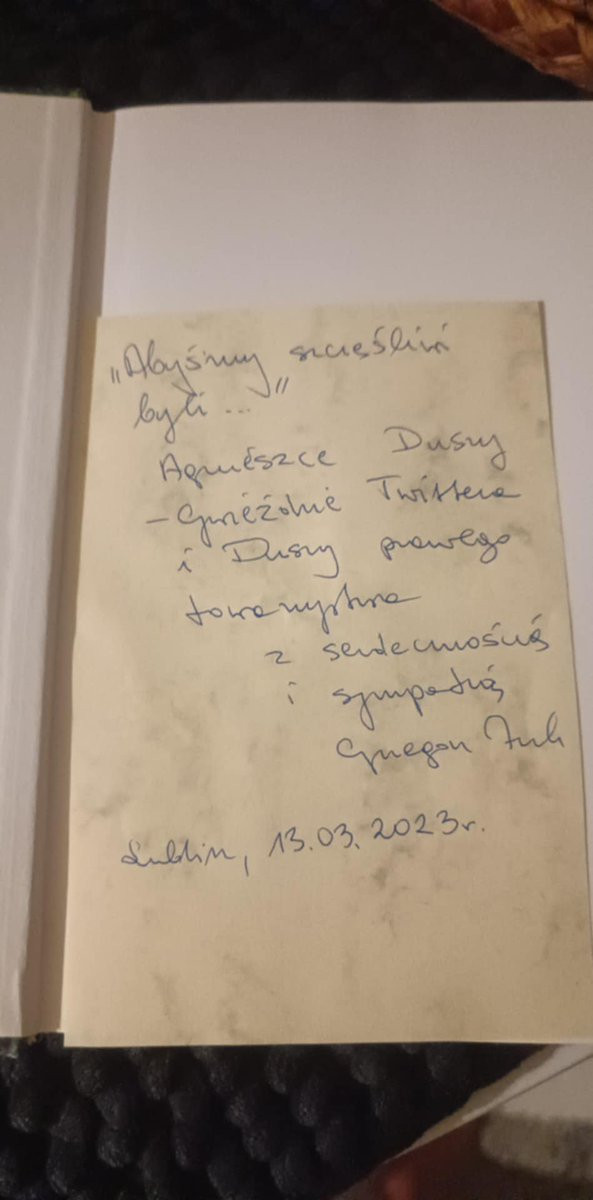 „Abyśmy szczęśliwi
byli ..."
Agnieszce Duszy
– Gwieździe Twittera
i Duszy prawego
towarzystwa
z serdecznością
i sympatią
Grzegorz
Lublin, 13.03.2023r.